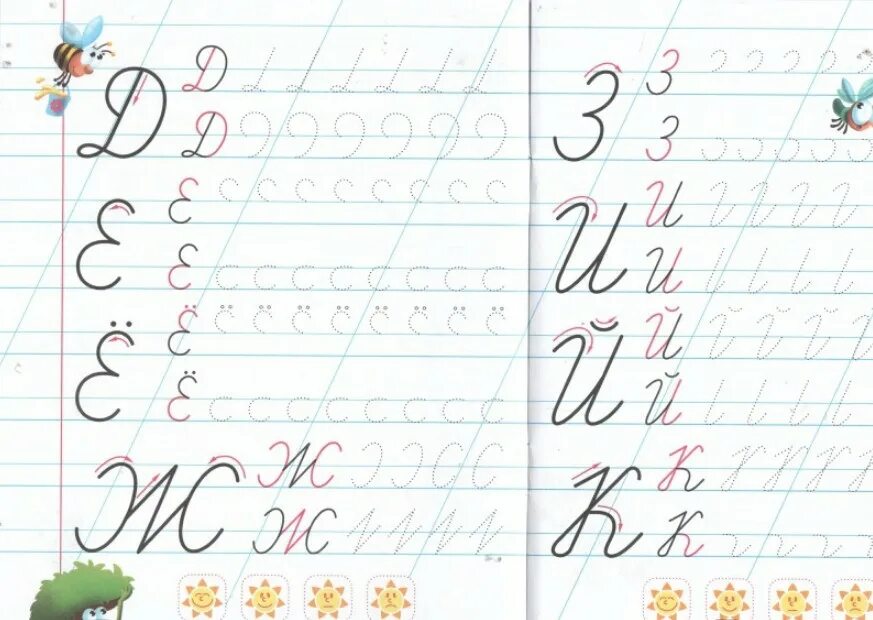 Д Д
Д
Е Е
Е
Ё Ё
Ё
Ж Ж
Ж
З З
З
И И
И
Й Й
Й
К К
К